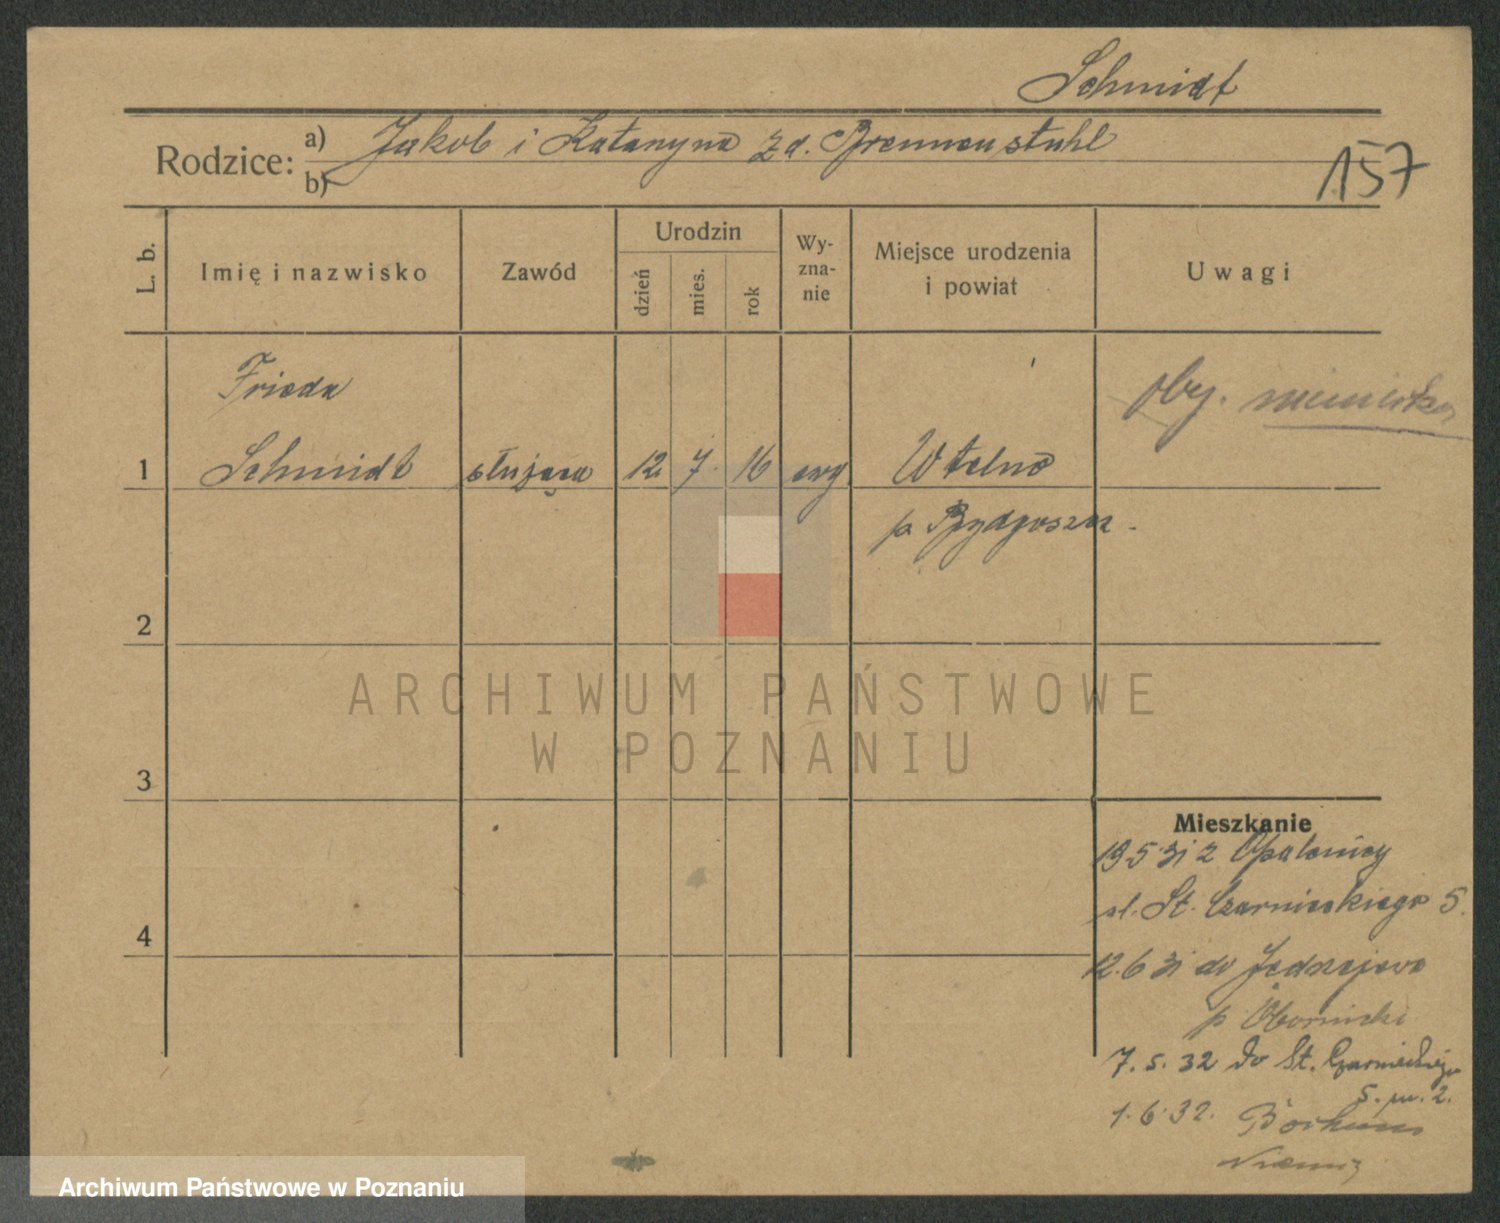 Schmidt
Rodzice:
a) Jakob i Katarzyna z d. Brennenstuhl
b)
157
L. b.
Imię i nazwisko
Zawód
Urodzin
dzień
mies.
rok
Wy-
zna-
nie
Miejsce urodzenia
i powiat
Uwagi
Frieda
1 Schmidt służąca 12. 7. 16 ewg Wtelno
p. Bydgoszcz.
oby. niemiecka
2
3
4
Mieszkanie
19.5 31 z Opalenicy
ul. St. Czarnieckiego 5.
12.6 31 do Jędrzejewa
p Obornicki
7. 5. 32 do St. Czarnieckiego
5. m. 2.
1. 6. 32. Bochum
Niemcy
ARCHIWUM PAŃSTWOWE
W POZNANIU
Archiwum Państwowe w Poznaniu